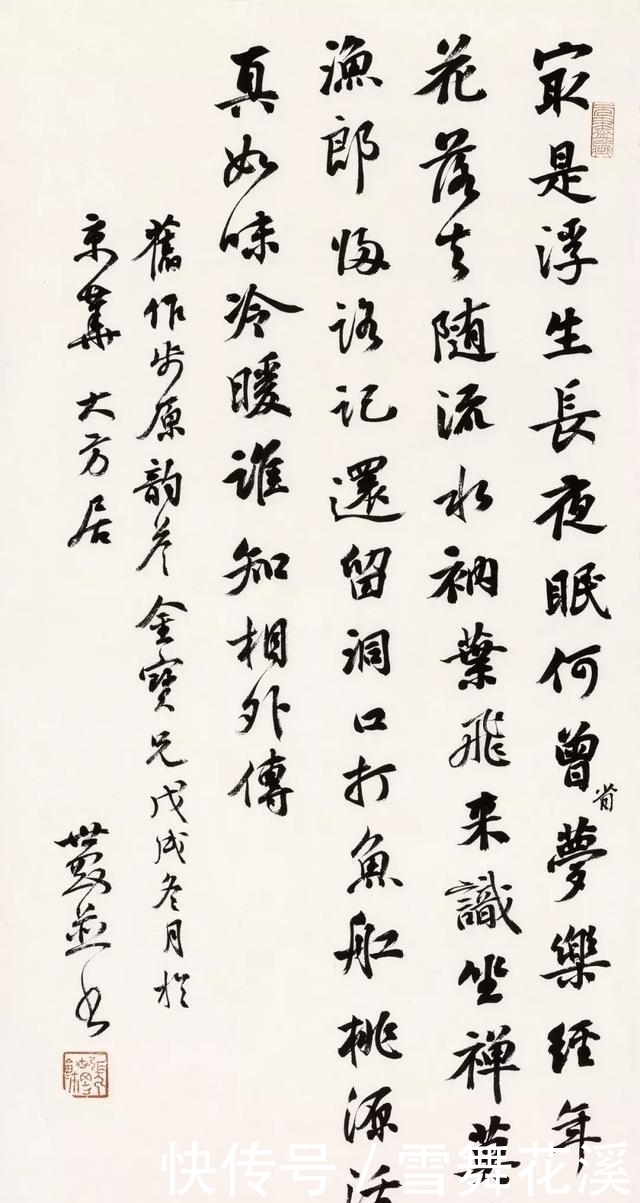 冣是浮生長夜眠何曾夢樂經年
省
花落去随流水衲葉飛来識坐禪
漁郎悔路記還留洞口打魚舡桃源
真如味冷暖誰知相外傳
舊作步原韵答金寶兄戊戌冬月於
京華大方居
世並書
快传号/雪舞花溪